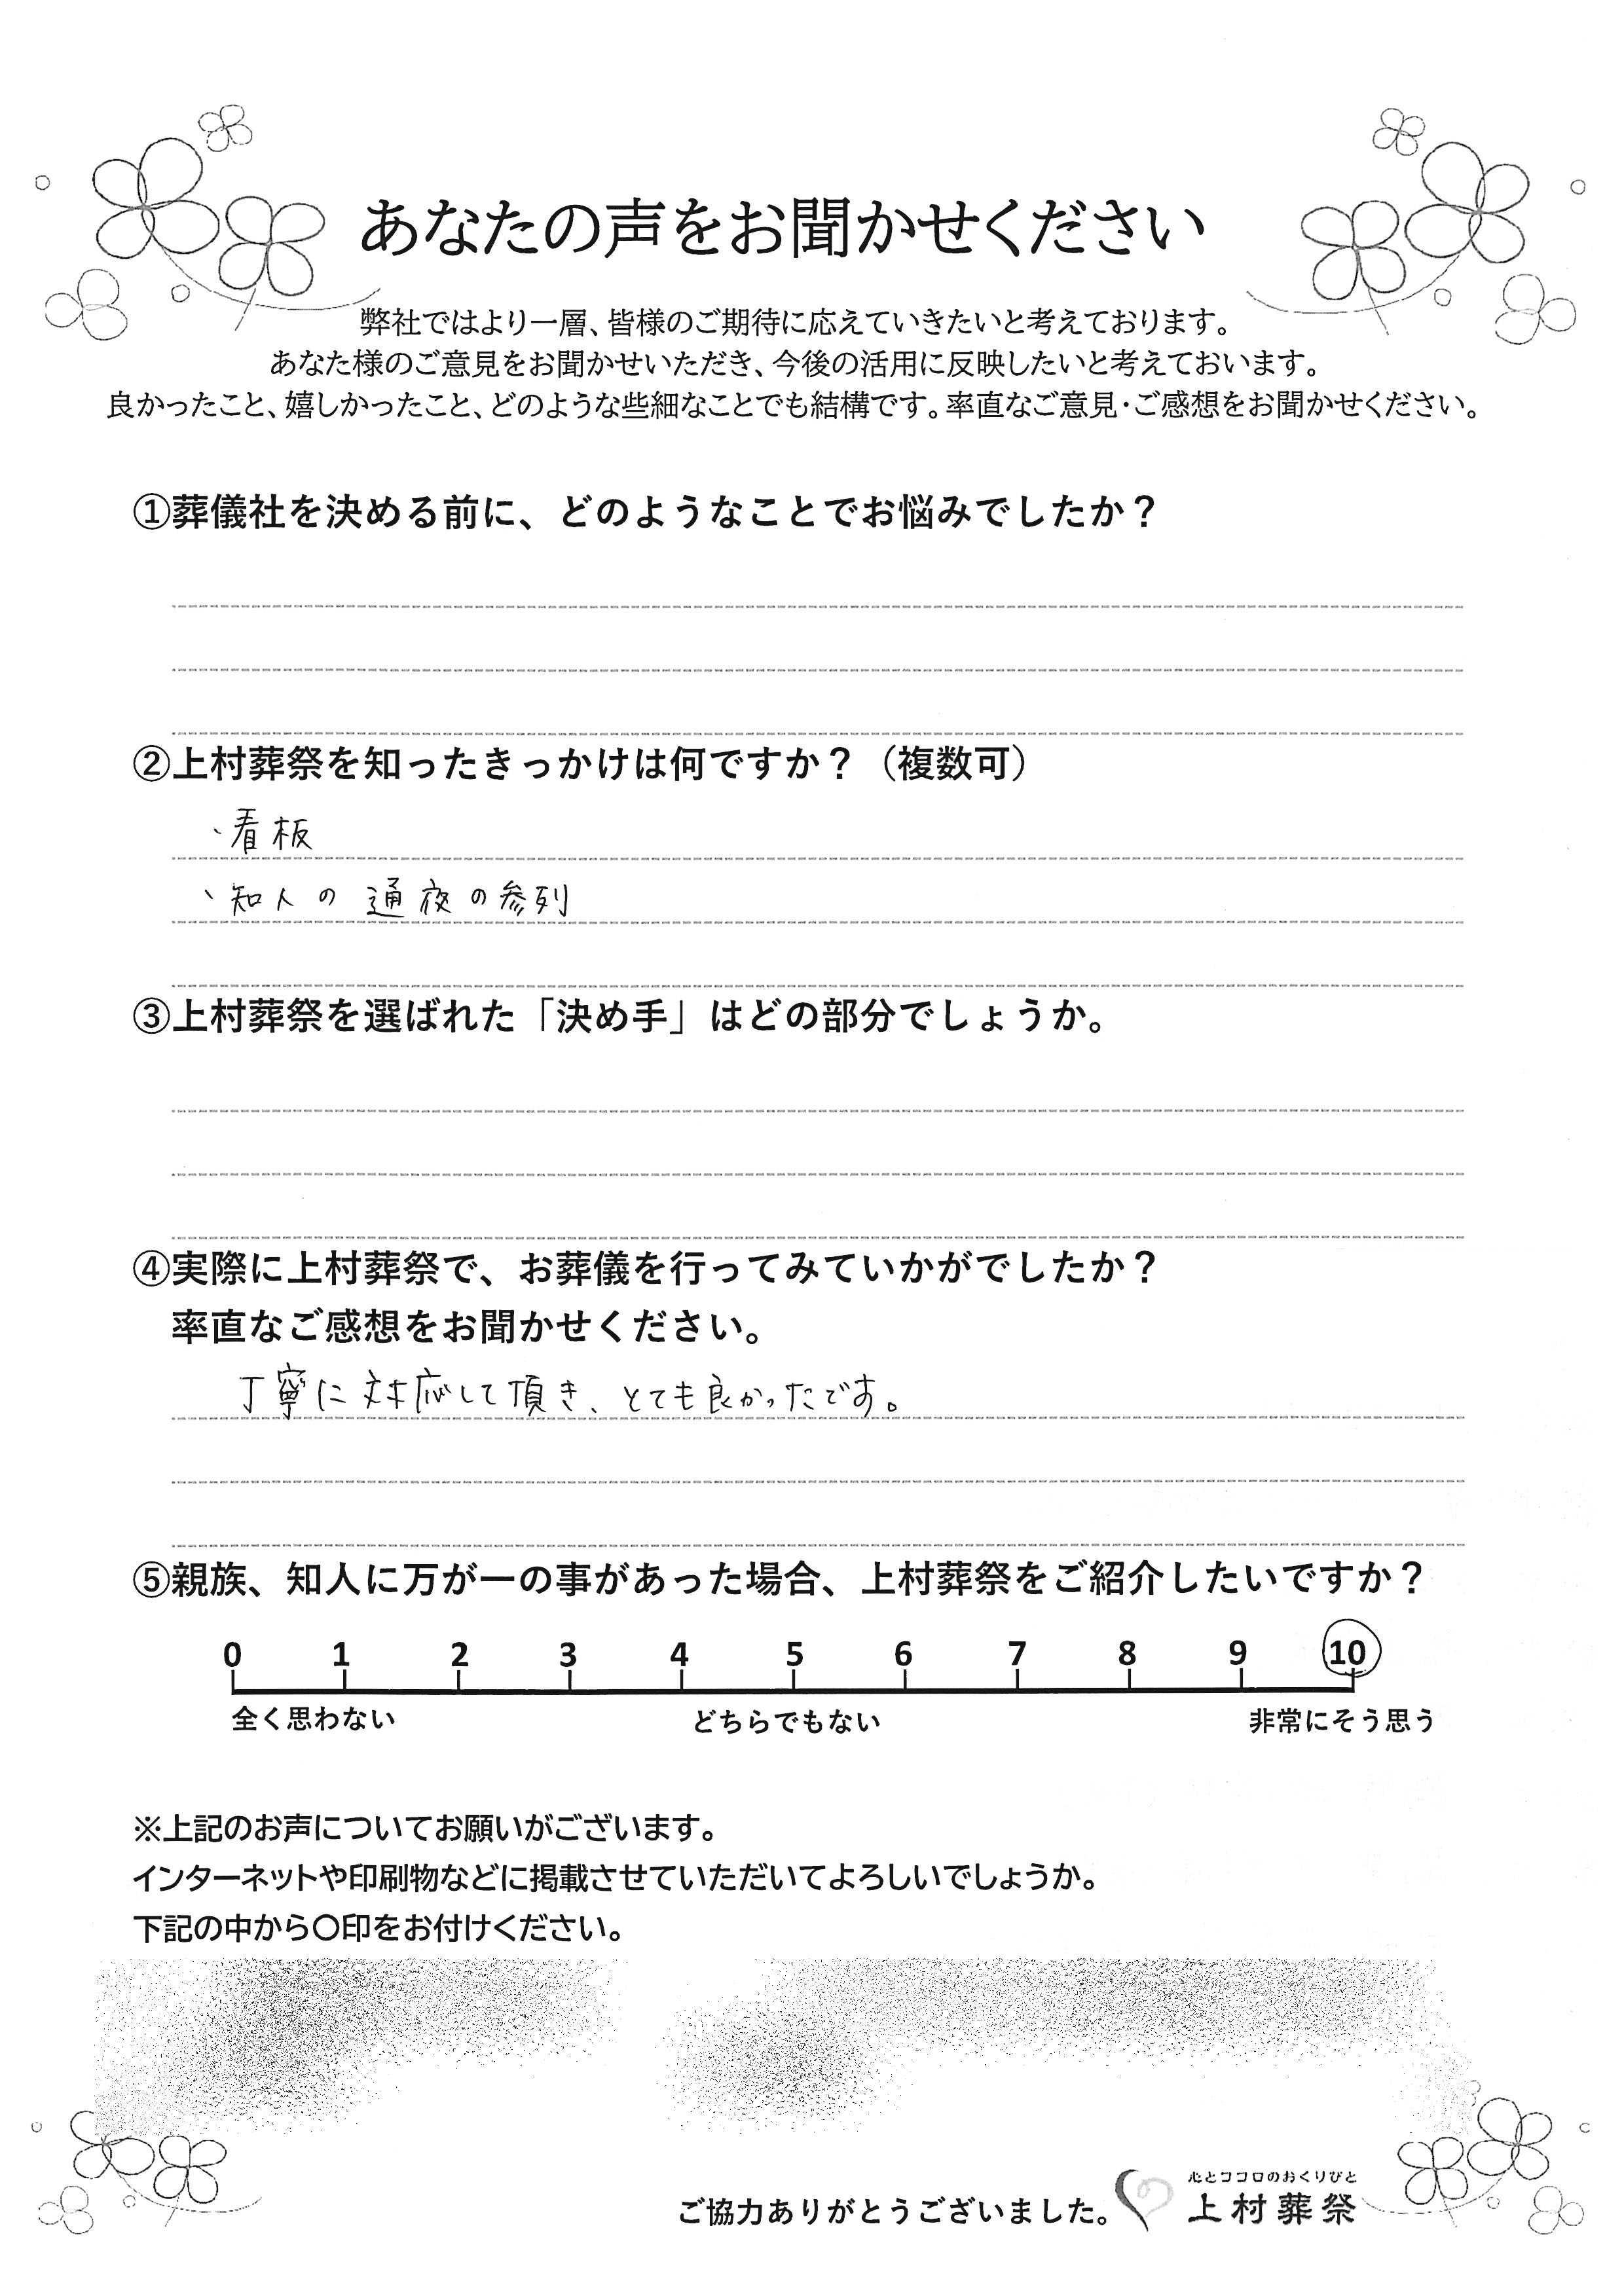 あなたの声をお聞かせください
弊社ではより一層、皆様のご期待に応えていきたいと考えております。
あなた様のご意見をお聞かせいただき、今後の活用に反映したいと考えておいます。
良かったこと、嬉しかったこと、どのような些細なことでも結構です。率直なご意見・ご感想をお聞かせください。
①葬儀社を決める前に、どのようなことでお悩みでしたか？
②上村葬祭を知ったきっかけは何ですか？（複数可）
・看板
・知人の通夜の参列
③上村葬祭を選ばれた「決め手」はどの部分でしょうか。
④実際に上村葬祭で、お葬儀を行ってみていかがでしたか？
率直なご感想をお聞かせください。
丁寧に対応して頂き、とても良かったです。
⑤親族、知人に万が一の事があった場合、上村葬祭をご紹介したいですか？
0 1 2 3 4 5 6 7 8 9 10
全く思わない どちらでもない 非常にそう思う
※上記のお声についてお願いがございます。
インターネットや印刷物などに掲載させていただいてよろしいでしょうか。
下記の中から〇印をお付けください。
心とココロのおくりびと
ご協力ありがとうございました。 上村葬祭